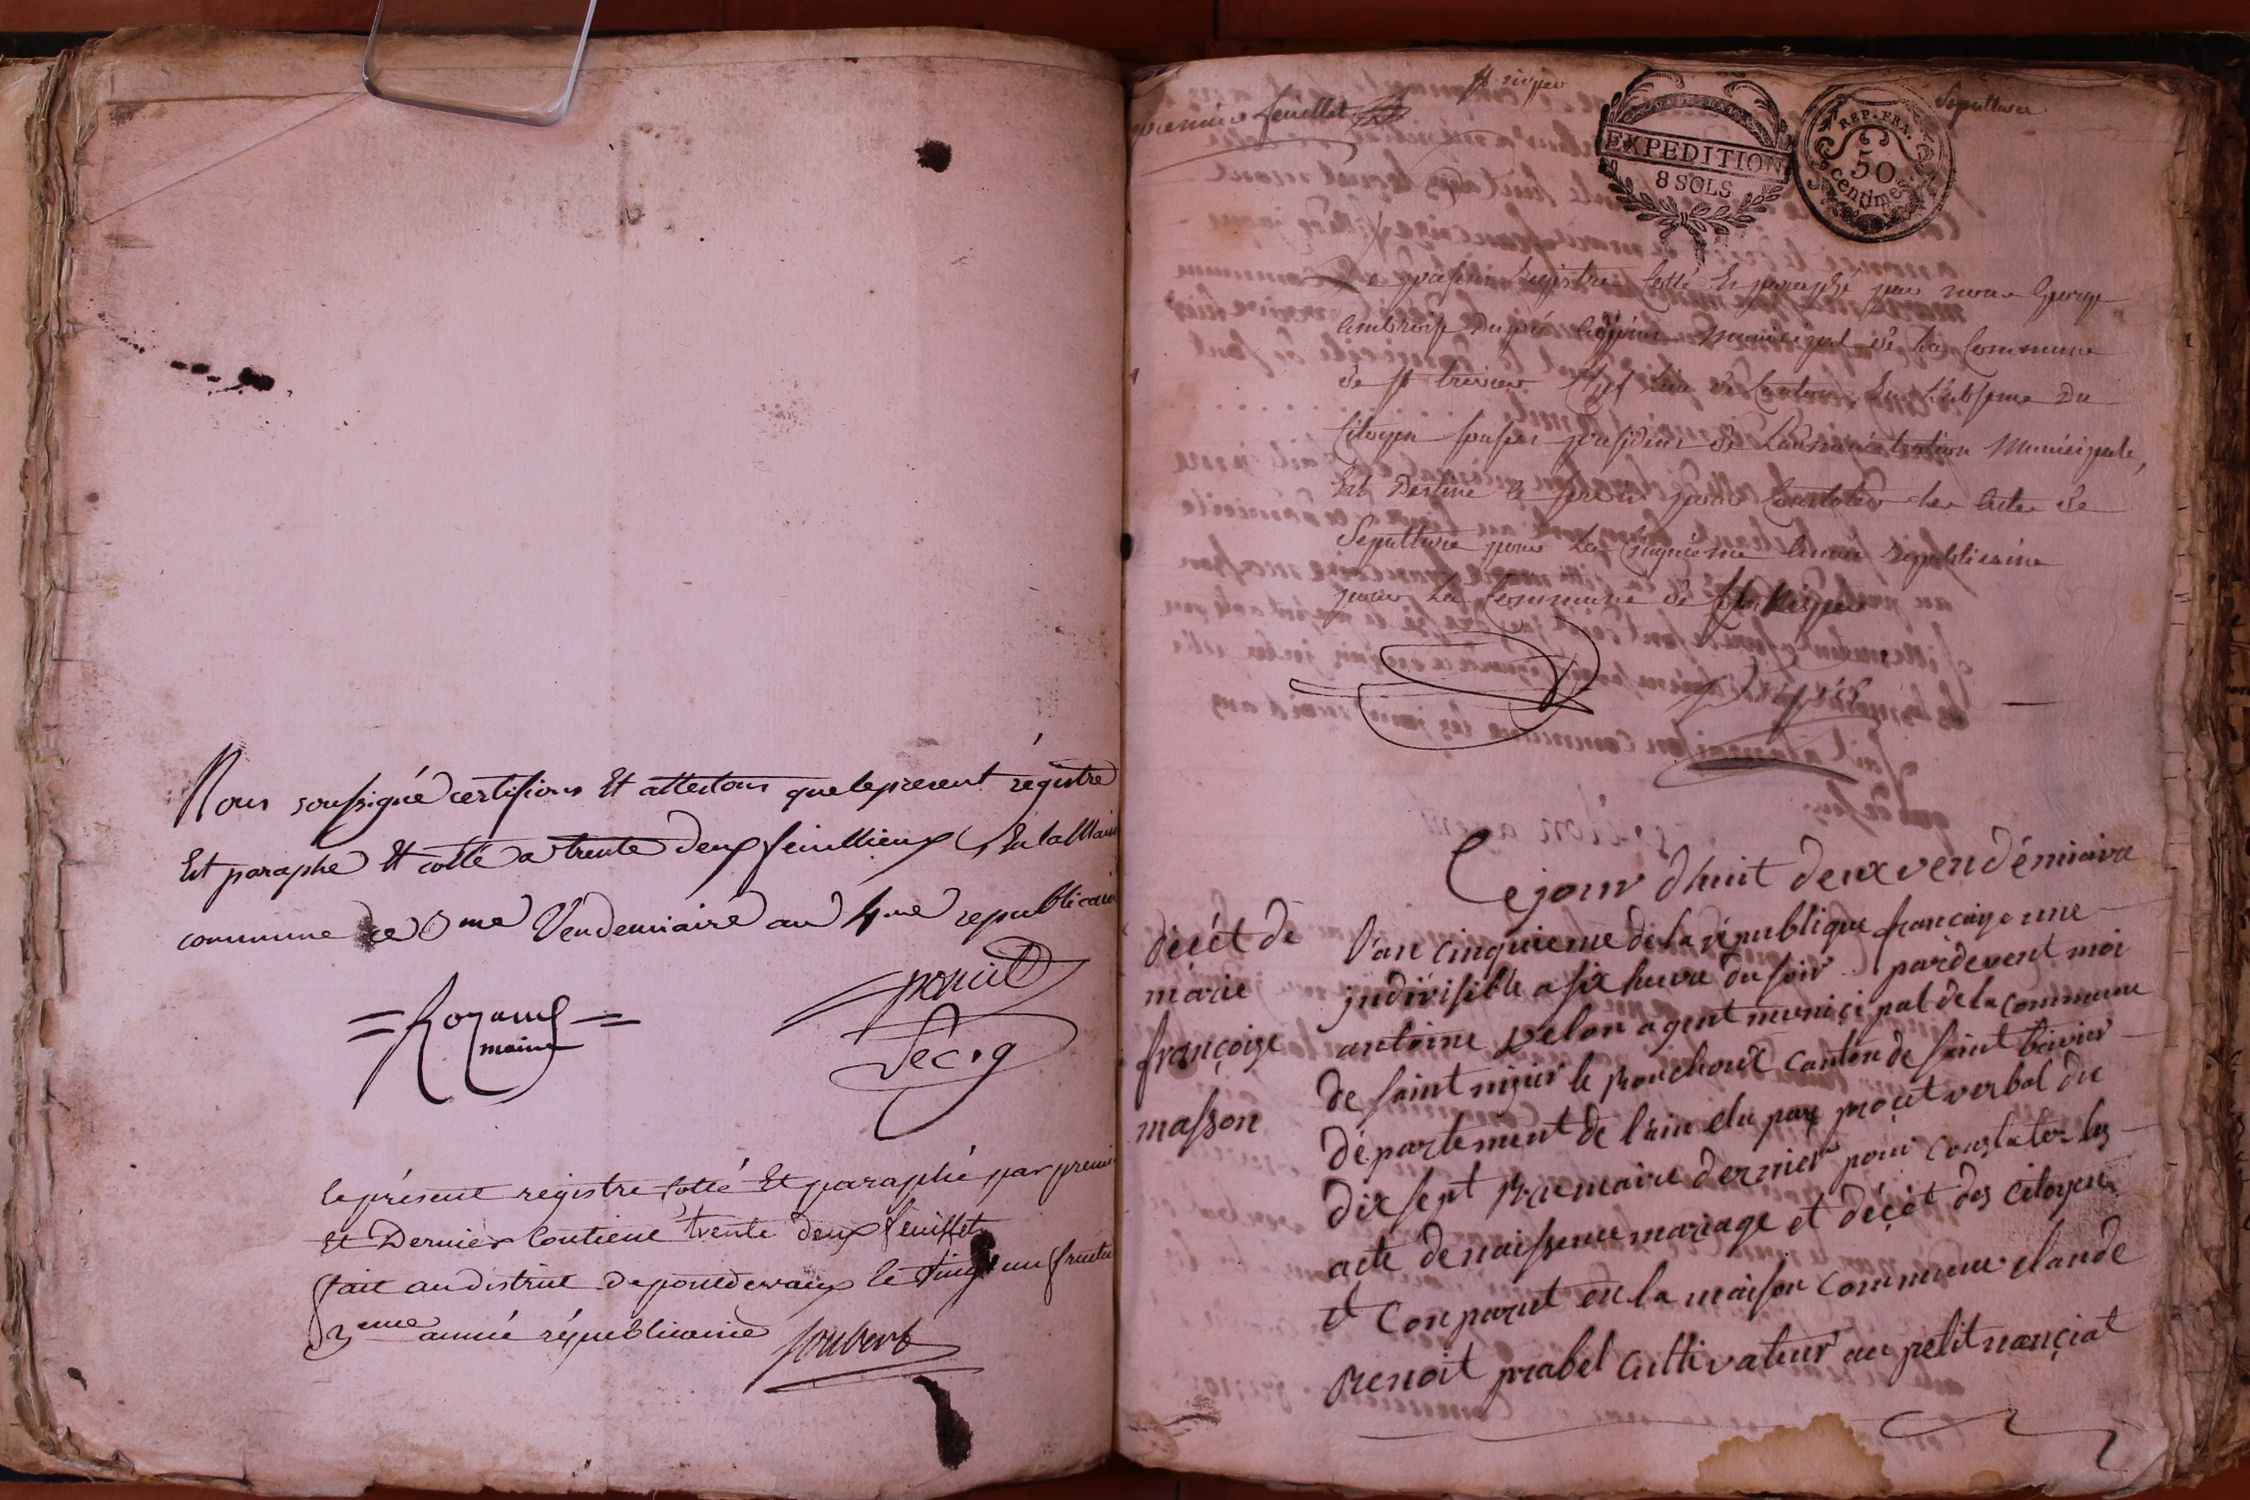 Nous soussigné certifions Et attestons que le present régistre
Est paraphé Et cotté a trente deux feuillieux En la Mair
commune ce 8me Vendemiaire an 4me republicain
Rozand
maire
poncet
Secrg
le présent registre cotté Et paraphé par premier
Et Dernier Contient trente deux feuillets
fait au district de pontdevaux le vingt un fructi
3eme année républicaine Joubert
premier feuillet
St nizier
Sepultures
EXPEDITION
8 SOLS
REP. FRA.
50
centimes
Le présent Registre Cotté Et paraphé par nous George
Ambroise Dupré Adjoint municipal de La Commune
de St trivier Chef Lieu de Canton En L'absence Du
Citoyen président de L'administration Municipale,
Est Destiné à servir pour Constater les Actes de
Sépulture pour La Cinquième Année Républicaine
pour La Commune de St Nizier
Dupré
Ce jour dhuit deux vendémiaire
l'an cinquieme de la république françoize une
indivisible a six heure du soir pardevent moi
antoine velon agent muniçipal de la commune
de saint nizier le bouchout canton de saint trivier
département de l'ain elu par proçet verbal du
dix sept brumaire dernier pour constater les
acte de naissence mariage et déçét des citoyens
et Conparut en la maison commune claude
benoit prabel Cultivateur au petit nançiat
déçét de
marie
françoize
masson